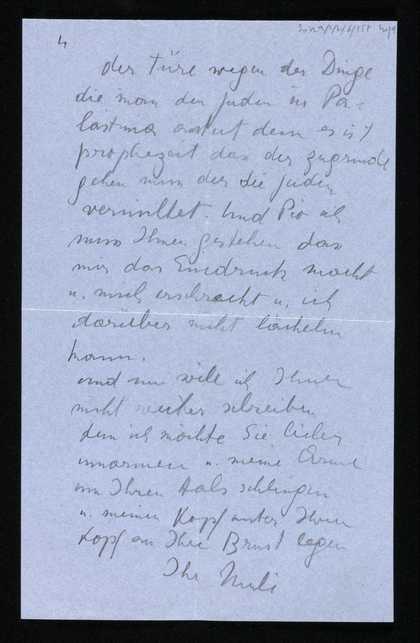 4
der Türe wegen der Dinge
die man den Juden in Pa-
lästina antut denn es ist
prophezeit dass der zugrunde
gehen muss der die Juden
vernichtet. Und Pio ich
muss Ihnen gestehen dass
mir das Eindruck macht
u. mich erschreckt u. ich
darüber nicht lächeln
kann.
und nun will ich Ihnen
nicht weiter schreiben
denn ich möchte Sie lieber
umarmen u. meine Arme
um Ihren Hals schlingen
u. meinen Kopf unter Ihren
Kopf an Ihre Brust legen
Ihr